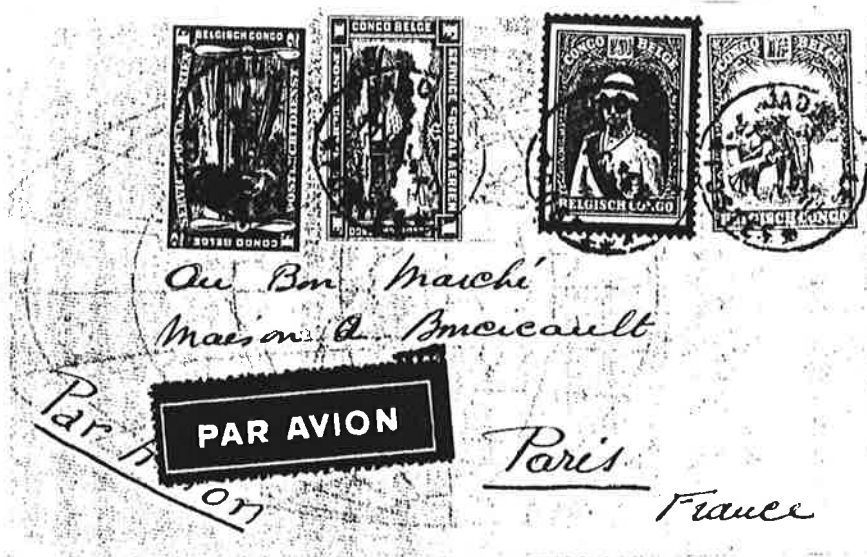 BELGISCH CONGO
CONGO BELGE
CONGO BELGE
SERVICE POSTAL AERIEN
CONGO BELGE
BELGISCH CONGO
CONGO BELGE
BELGISCH CONGO
Au Bon Marché
Maison A Boucicault
Par Avion
PAR AVION
Paris
France